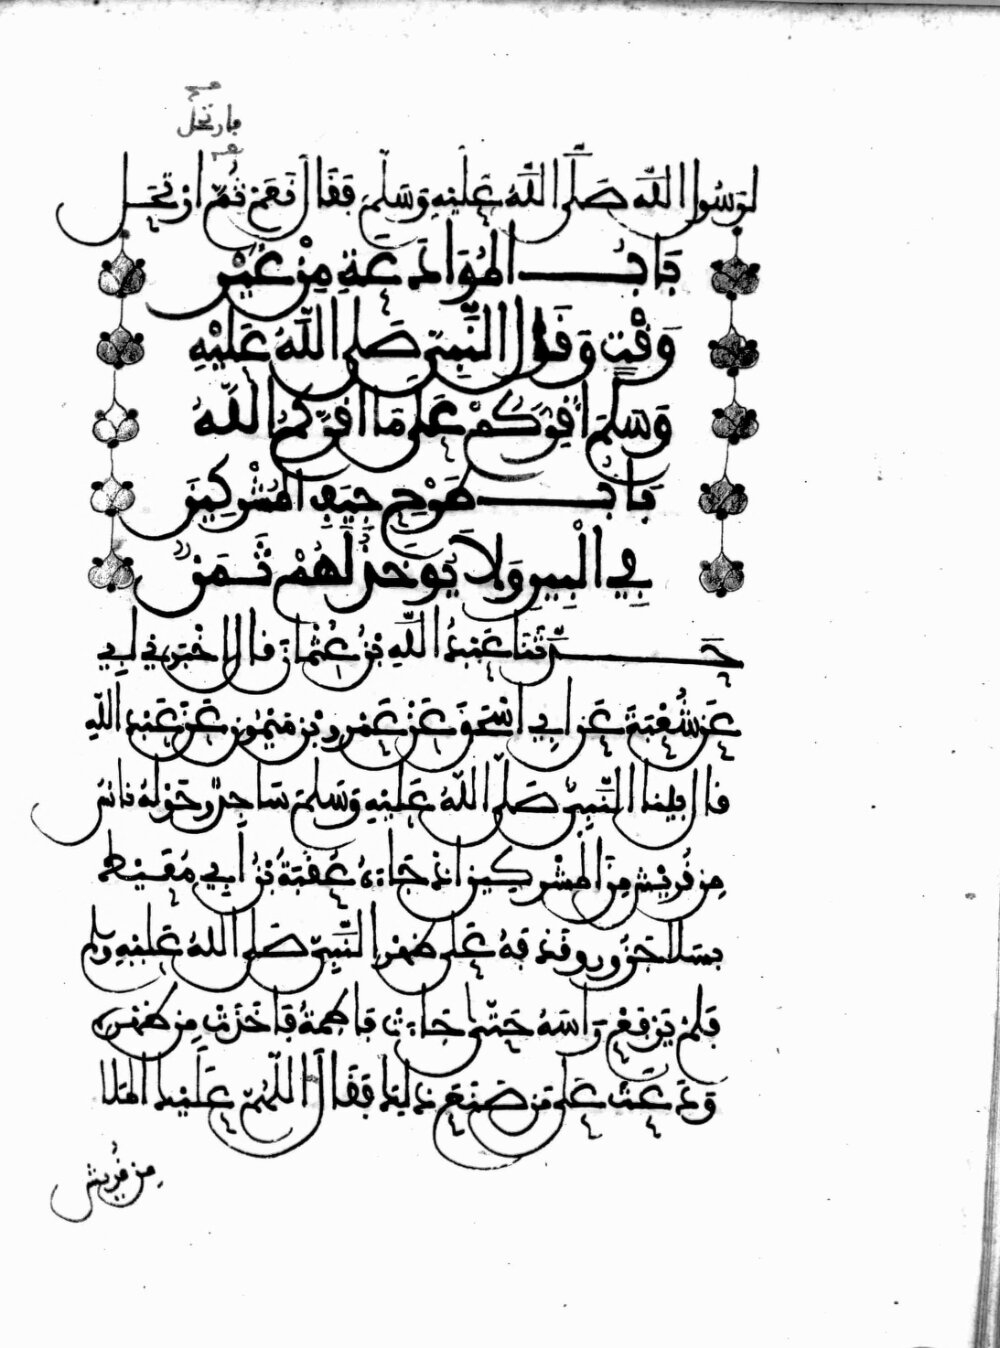 صح
فارتحل
لرسول اللّه صَلَّى اللَّهُ عَلَيْهِ وَسَلَّمَ فَقَالَ نَعَمْ ثُمَّ ارتَحَـل
بَابُ الْمُوَادَعَةِ مِنْ غَيْرِ
وَقْتٍ وَقَوْلِ النَّبِيِّ صَلَّى اللَّهُ عَلَيْهِ
وَسَلَّمَ أُقِرُّكُمْ عَلَى مَا أَقَرَّكُمُ اللَّهُ
بَابُ طَرْحِ جِيَفِ الْمُشْرِكِينَ
فِي الْبِيرِ وَلَا يُوخَذُ لَهُمْ ثَمَنٌ
حَدَّثَنَا عَبْدُ اللَّهِ بْنُ عُثْمَانَ قَالَ أَخْبَرَنِي أَبِي
عَنْ شُعْبَةَ عَنْ أَبِي إِسْحَقَ عَنْ عَمْرِو بْنِ مَيْمُونٍ عَنْ عَبْدِ اللَّهِ
قَالَ بينا النَّبِيُّ صَلَّى اللَّهُ عَلَيْهِ وَسَلَّمَ سَاجِدٌ وَحَوْلَهُ نَاسٌ
مِنْ قُرَيْشٍ مِنَ الْمُشْرِكِينَ إِذْ جَاءَهُ عُقْبَةُ بْنُ أَبِي مُعَيْطٍ
بِسَلَا جَزُورٍ وقذفه عَلَى ظَهْرِ النَّبِيِّ صَلَّى اللَّهُ عَلَيْهِ وسلم
فَلَمْ يَرْفَعْ رَأْسَهُ حَتَّى جَاءَتْ فَاطِمَةُ فَأَخَذَتْ مِنْ ظَهْرِهِ
وَدَعَتْ عَلَى مَنْ صَنَعَ ذَلِكَ فَقَالَ اللَّهُمَّ عَلَيْكَ الْمَلَا
مِنْ قُرَيْشٍ